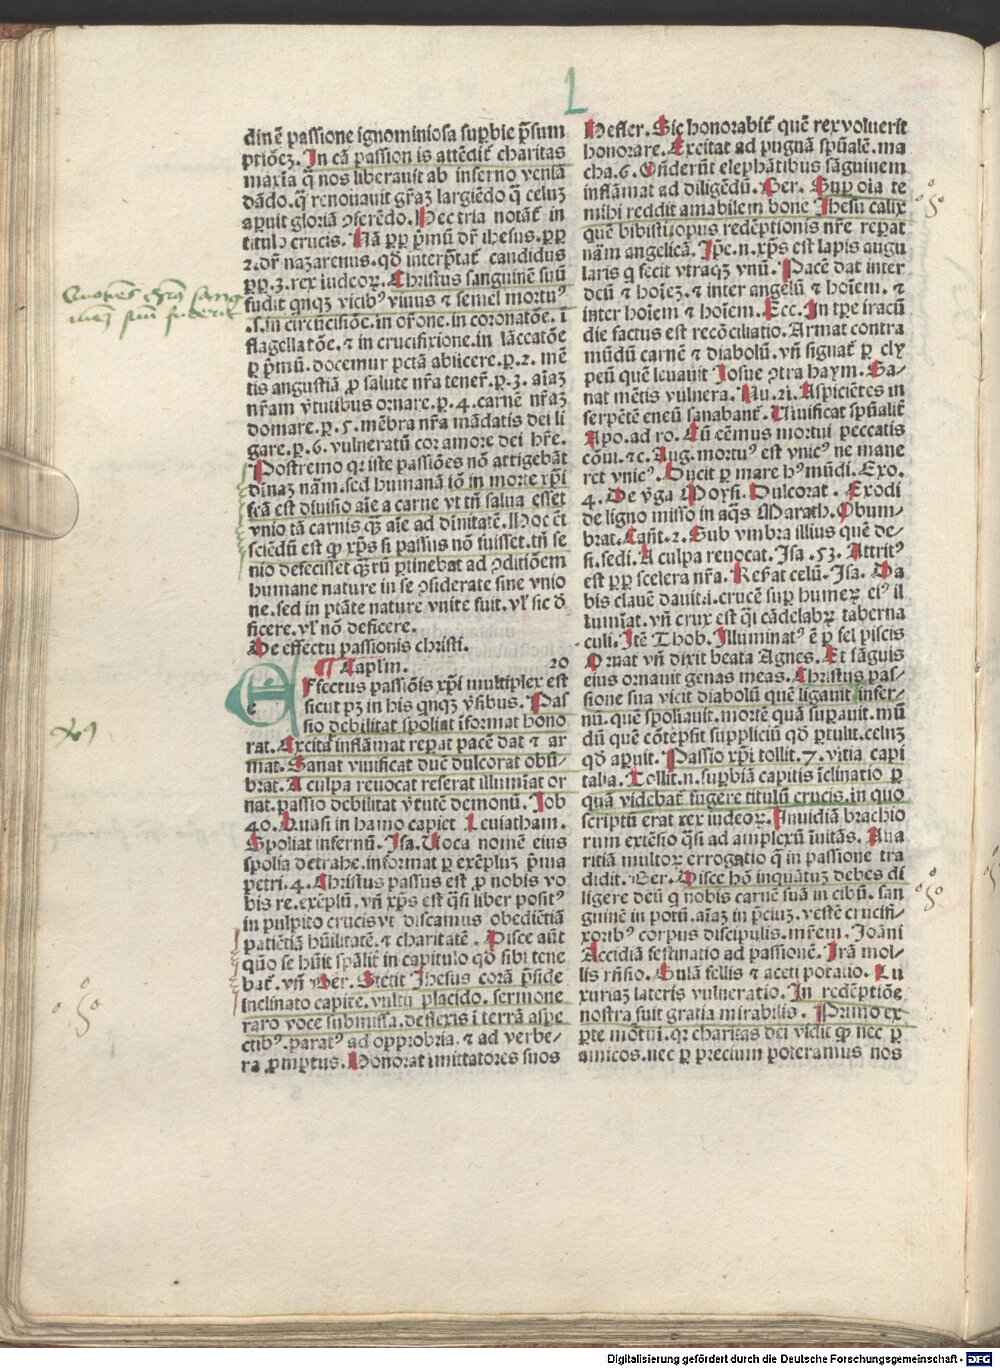 L
dinē passione ignominiosa suꝑbie p̄sum
ptiōeꝫ. In eā passion is attēdit᷑ charitas
maxīa q̄ nos liberauit ab inferno veniā
dādo. q̄ renouauit gr̄aꝫ largiēdo q̄ celuꝫ
aꝑuit gloriā ꝯferēdo. Hec tria notāt᷑ in
titulo crucis. Nā ꝓꝑ pͥmū dr̄ ihesus. ꝓꝑ
2. dr̄ nazarenus. qd̄ interp̄tat᷑ candidus
ꝓꝑ. 3. rex iudeoꝝ. Christus sanguinē suū
fudit qnqꝫ vicibꝰ viuus ⁊ semel mortuꝰ
.s. in circūcisiōe. in or̄one. in coronatōe. ī
flagellatōe. ⁊ in crucifixione. in lāceatōe
ꝑ pͥmū. docemur pctā abiicere. ꝑ. 2. mē
tis angustiā ꝓ salute nr̄a tener̄. ꝑ. 3. aīaꝫ
nr̄am v̓tutibus ornare. ꝑ. 4. carnē nr̄aꝫ
domare. ꝑ. 5. mēbra nr̄a mādatis dei li
gare. ꝑ. 6. vulneratū cor amore dei hr̄e.
Postremo qꝛ iste passiōes nō attigebāt
diuinaꝫ nām. sed humanā iō in morte xp̄i
fcā est diuisio aīe a carne vt tn̄ salua esset
vnio tā carnis qꝫ aīe ad diuinitatē. Hoc et̄
sciēdū est ꝙ xp̄s si passus nō fuisset. tn̄ se
nio defecisset qꝫtū ꝑtinebat ad ꝯditiōem
humane nature in se ꝯsiderate sine vnio
ne. sed in ptāte nature vnite fuit. vl̓ sic d̓
ficere. vl̓ nō deficere.
De effectu passionis christi.
¶ Caplm. 20
Effectus passiōis xp̄i multiplex est
sicut pꝫ in his qnqꝫ v̓sibus. Pas
sio debilitat spoliat īformat hono
rat. Excitat inflāmat reꝑat pacē dat ⁊ ar
mat. Sanat viuificat ducē dulcorat obū-
brat. A culpa reuocat reserat illumīat or
nat. passio debilitat v̓tutē demonū. Job
40. Quasi in hamo capiet Leuiatham.
Spoliat infernū. Isa. Uoca nomē eius
spolia detrahe. informat ꝑ exēpluꝫ pͥma
petri. 4. Christus passus est ꝓ nobis vo
bis re. exēplū. vn̄ xp̄s est qͣsi liber positꝰ
in pulpito crucis vt discamus obediētiā
patiētiā hūilitatē. ⁊ charitatē. Disce aūt
quō se hūit spāliť in capitulo qd̄ sibi tene
bat᷑. vn̄ Ber. Stetit Jhesus corā p̄side
inclinato capite. vultu placido. sermone
raro voce submissa. deflexis ī terrā aspe
ctibꝰ. paratꝰ ad opprobria. ⁊ ad verbe-
ra ꝓmptus. Honorat imitatores suos
Hester. Sic honorabit᷑ quē rex voluerit
honorare. Excitat ad pugnā spūalē. ma
cha. 6. Ondert̄ elephātibus sāguinem
inflāmat ad diligēdū. Ber. Suꝑ oīa te
mihi reddit amabilem bone Jhesu calix
quē bibisti. opus redēptionis nr̄e reꝑat
nām angelicā. Ip̄e. n. xp̄s est lapis angu
laris q fecit vtraqꝫ vnū. Pacē dat inter
deū ⁊ hoīeꝫ. ⁊ inter angelū ⁊ hoīem. ⁊
inter hoīem ⁊ hoīem. Ecc. In tꝑe iracū
die factus est recōciliatio. Armat contra
mūdū carnē ⁊ diabolū. vn̄ signat᷑ ꝑ cly
peū quē leuauit Josue ꝯtra haym. Sa-
nat mētis vulnera. Nu. 21. Aspiciētes in
serpētē eneū sanabant᷑. Uiuificat spūaliť
Apo. ad ro. Cū eēmus mortui peccatis
cōui. ⁊c. Aug. mortuꝰ est vnicꝰ ne mane
ret vnicꝰ. Ducit ꝑ mare hꝰ mūdi. Exo.
4. De v̓ga Moysi. Dulcorat. Exodi
de ligno misso in aqͣs Marath. Obum-
brat. Can̄t. 2. Sub vmbra illius quē de-
si. sedi. A culpa reuocat. Isa. 53. Attritꝰ
est ꝓꝑ scelera nr̄a. Reserat celū. Isa. Da
bis clauē dauid. crucē suꝑ humeꝝ eiꝰ il
lumīat. vn̄ crux est qͣi cādelabꝝ taberna
culi. Itē Thob. Illuminatꝰ ē ꝑ fel piscis
Ornat vn̄ dixit beata Agnes. Et sāguis
eius ornauit genas meas. Christus pas-
sione sua vicit diabolū quē ligauit infer-
nū. quē spoliauit. mortē quā suꝑauit. mū
dū quē cōtēpsit suppliciū qd̄ ꝑtulit. celuꝫ
qd̄ aꝑuit. Passio xp̄i tollit. 7. vitia capi
talia. Tollit. n. suꝑbiā capitis īclinatio ꝑ
quā videbat᷑ fugere titulū crucis. in quo
scriptū erat rex iudeoꝝ. Inuidiā brachio
rum extēsio qͣsi ad amplexū īuitās. Aua
ritiā multoꝝ errogatio q̄ in passione tra
didit. Ber. Disce hō inquātuꝫ debes di
ligere deū q nobis carnē suā in cibū. san
guinē in potū. aīaꝫ in p̄ciuꝫ. vestē crucifi-
xoribꝰ corpus discipulis. mr̄em. Joāni
Accidiā festinatio ad passionē. Irā mol-
lis rn̄sio. Gulā fellis ⁊ aceti potatio. Lu
xuriaꝫ lateris vulneratio. In redēptiōe
nostra fuit gratia mirabilis. Primo ex
ꝑte mōtui. qꝛ charitas dei vidit ꝙ nec ꝑ
amicos. nec ꝑ precium poteramus nos
Digitalisierung gefördert durch die Deutsche Forschungsgemeinschaft - DFG